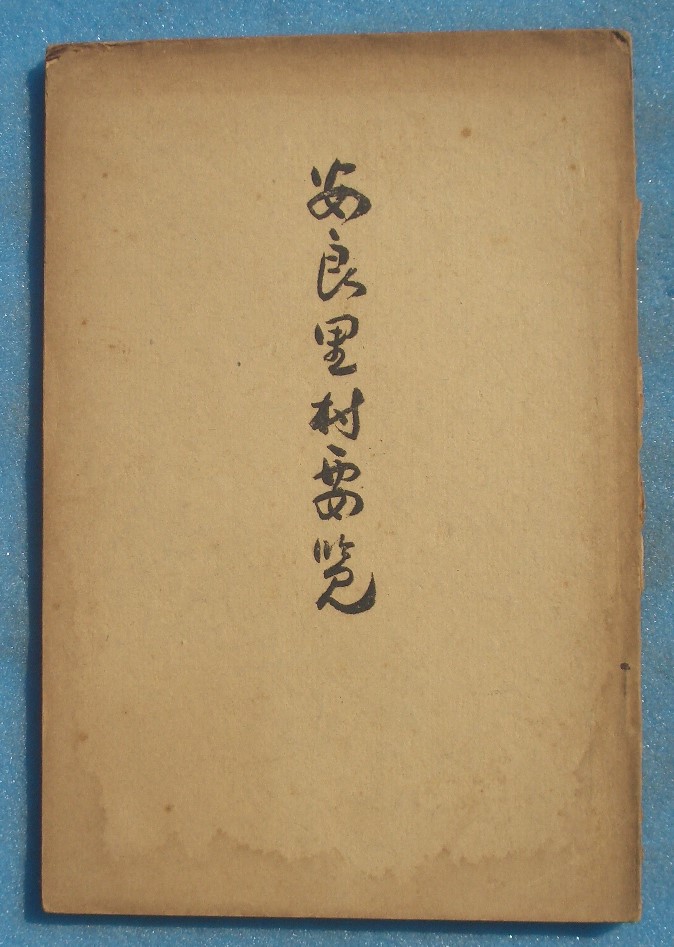 安良里村要覧